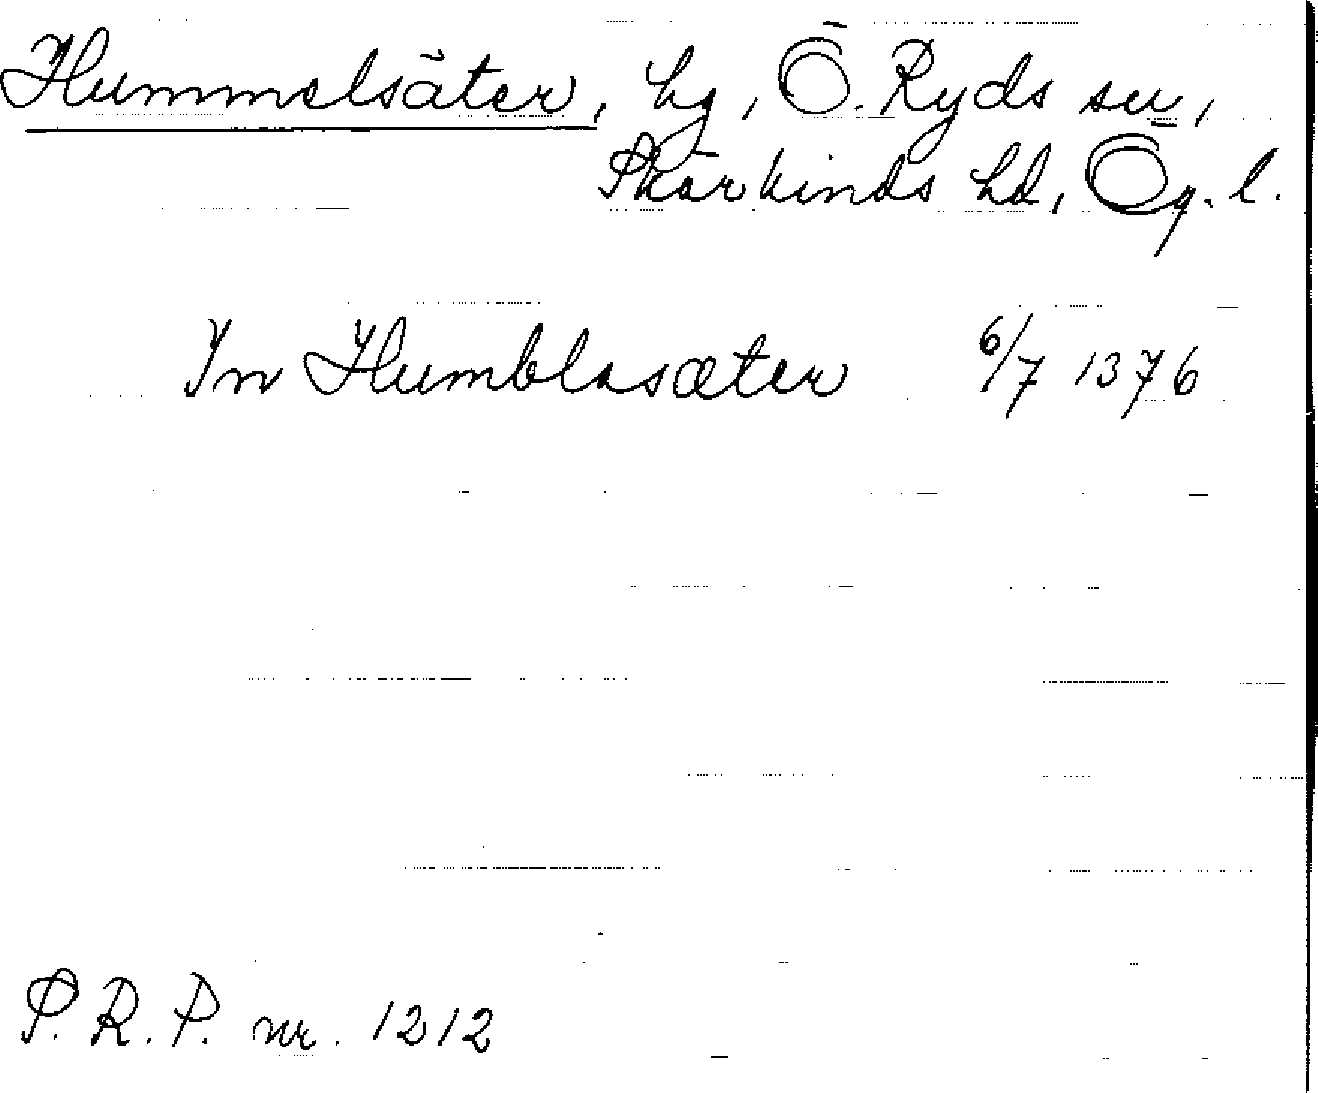 Hummelsäter, hg, Ö. Ryds sn,
Skärkinds hd, Ög. l.
In Humblasæter 6/7 1376
S. R. P. nr. 1212